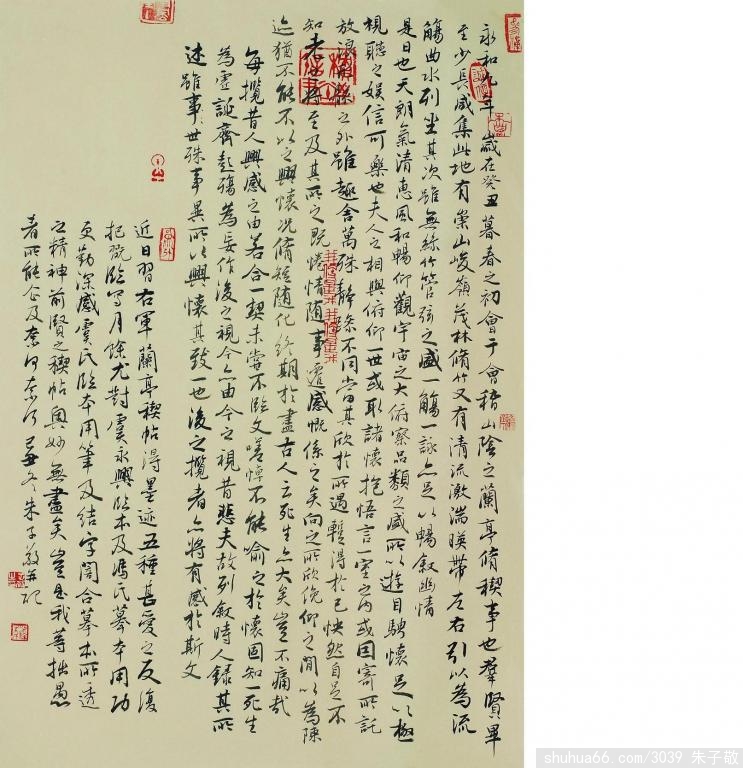 永和九年歲在癸丑暮春之初會于會稽山陰之蘭亭脩稧事也羣賢畢
至少長咸集此地有崇山峻嶺茂林脩竹又有清流激湍暎帶左右引以為流
觴曲水列坐其次雖無絲竹管弦之盛一觴一詠亦足以暢敘幽情
是日也天朗氣清惠風和暢仰觀宇宙之大俯察品類之盛所以遊目騁懷足以極
視聽之娛信可樂也夫人之相與俯仰一世或取諸懷抱悟言一室之內或因寄所託
放浪形骸之外雖趣舍萬殊靜躁不同當其欣於所遇暫得於己怏然自足不
知老之將至及其所之既惓情隨事遷感慨係之矣向之所欣俛仰之間以為陳
迹猶不能不以之興懷況脩短隨化終期於盡古人云死生亦大矣豈不痛哉
每攬昔人興感之由若合一契未嘗不臨文嗟悼不能喻之於懷固知一死生
為虛誕齊彭殤為妄作後之視今亦由今之視昔悲夫故列敘時人錄其所
述雖事世殊事異所以興懷其致一也後之攬者亦將有感於斯文
近日習右軍蘭亭稧帖得墨迹五種甚愛之反復
把玩臨寫月餘尤對虞永興臨本及馮氏摹本用功
更勤深感虞氏臨本用筆及結字闇合摹本所透
之精神前賢之稧帖奧妙無盡矣豈是我等拙愚
者所能企及奈何奈何己丑冬朱子敬并記
shuhua66.com/3039 朱子敬